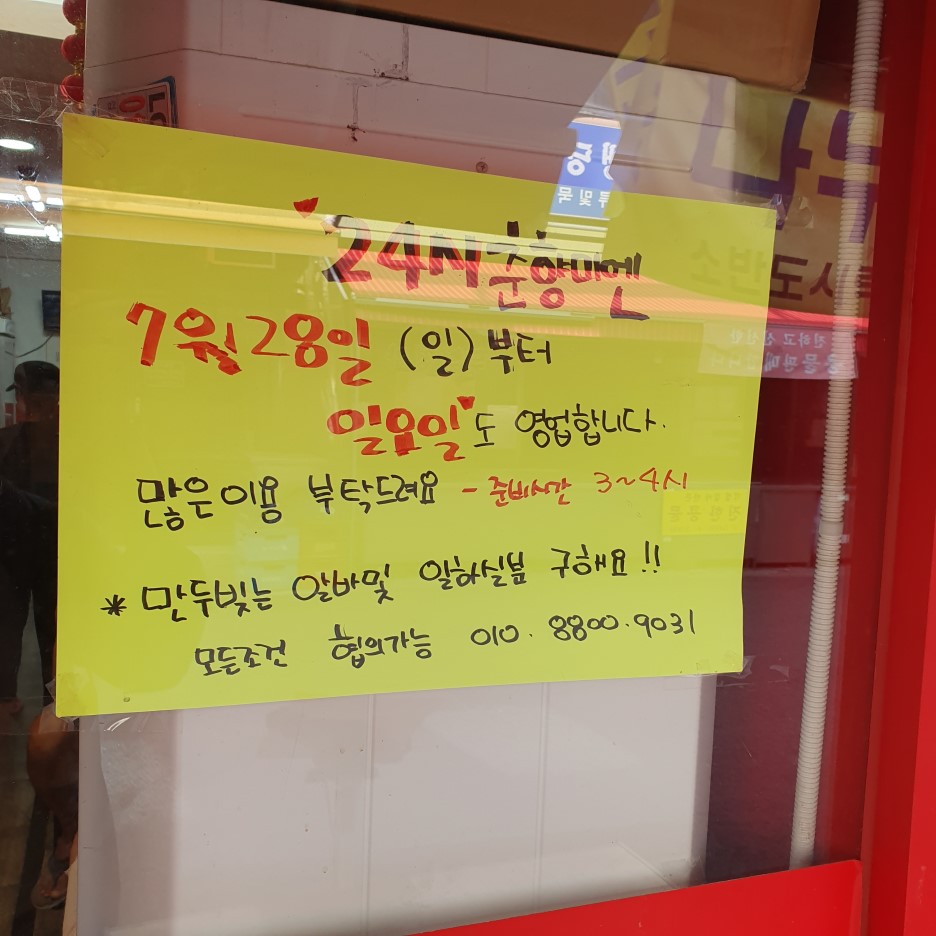 24시 순향미엔
7월 28일 (일) 부터
일요일도 영업합니다.
많은이용 부탁드려요 - 준비시간 3~4시
* 만두빚는 알바및 일하실분 구해요!!
모든조건 협의가능 010. 8800.9031